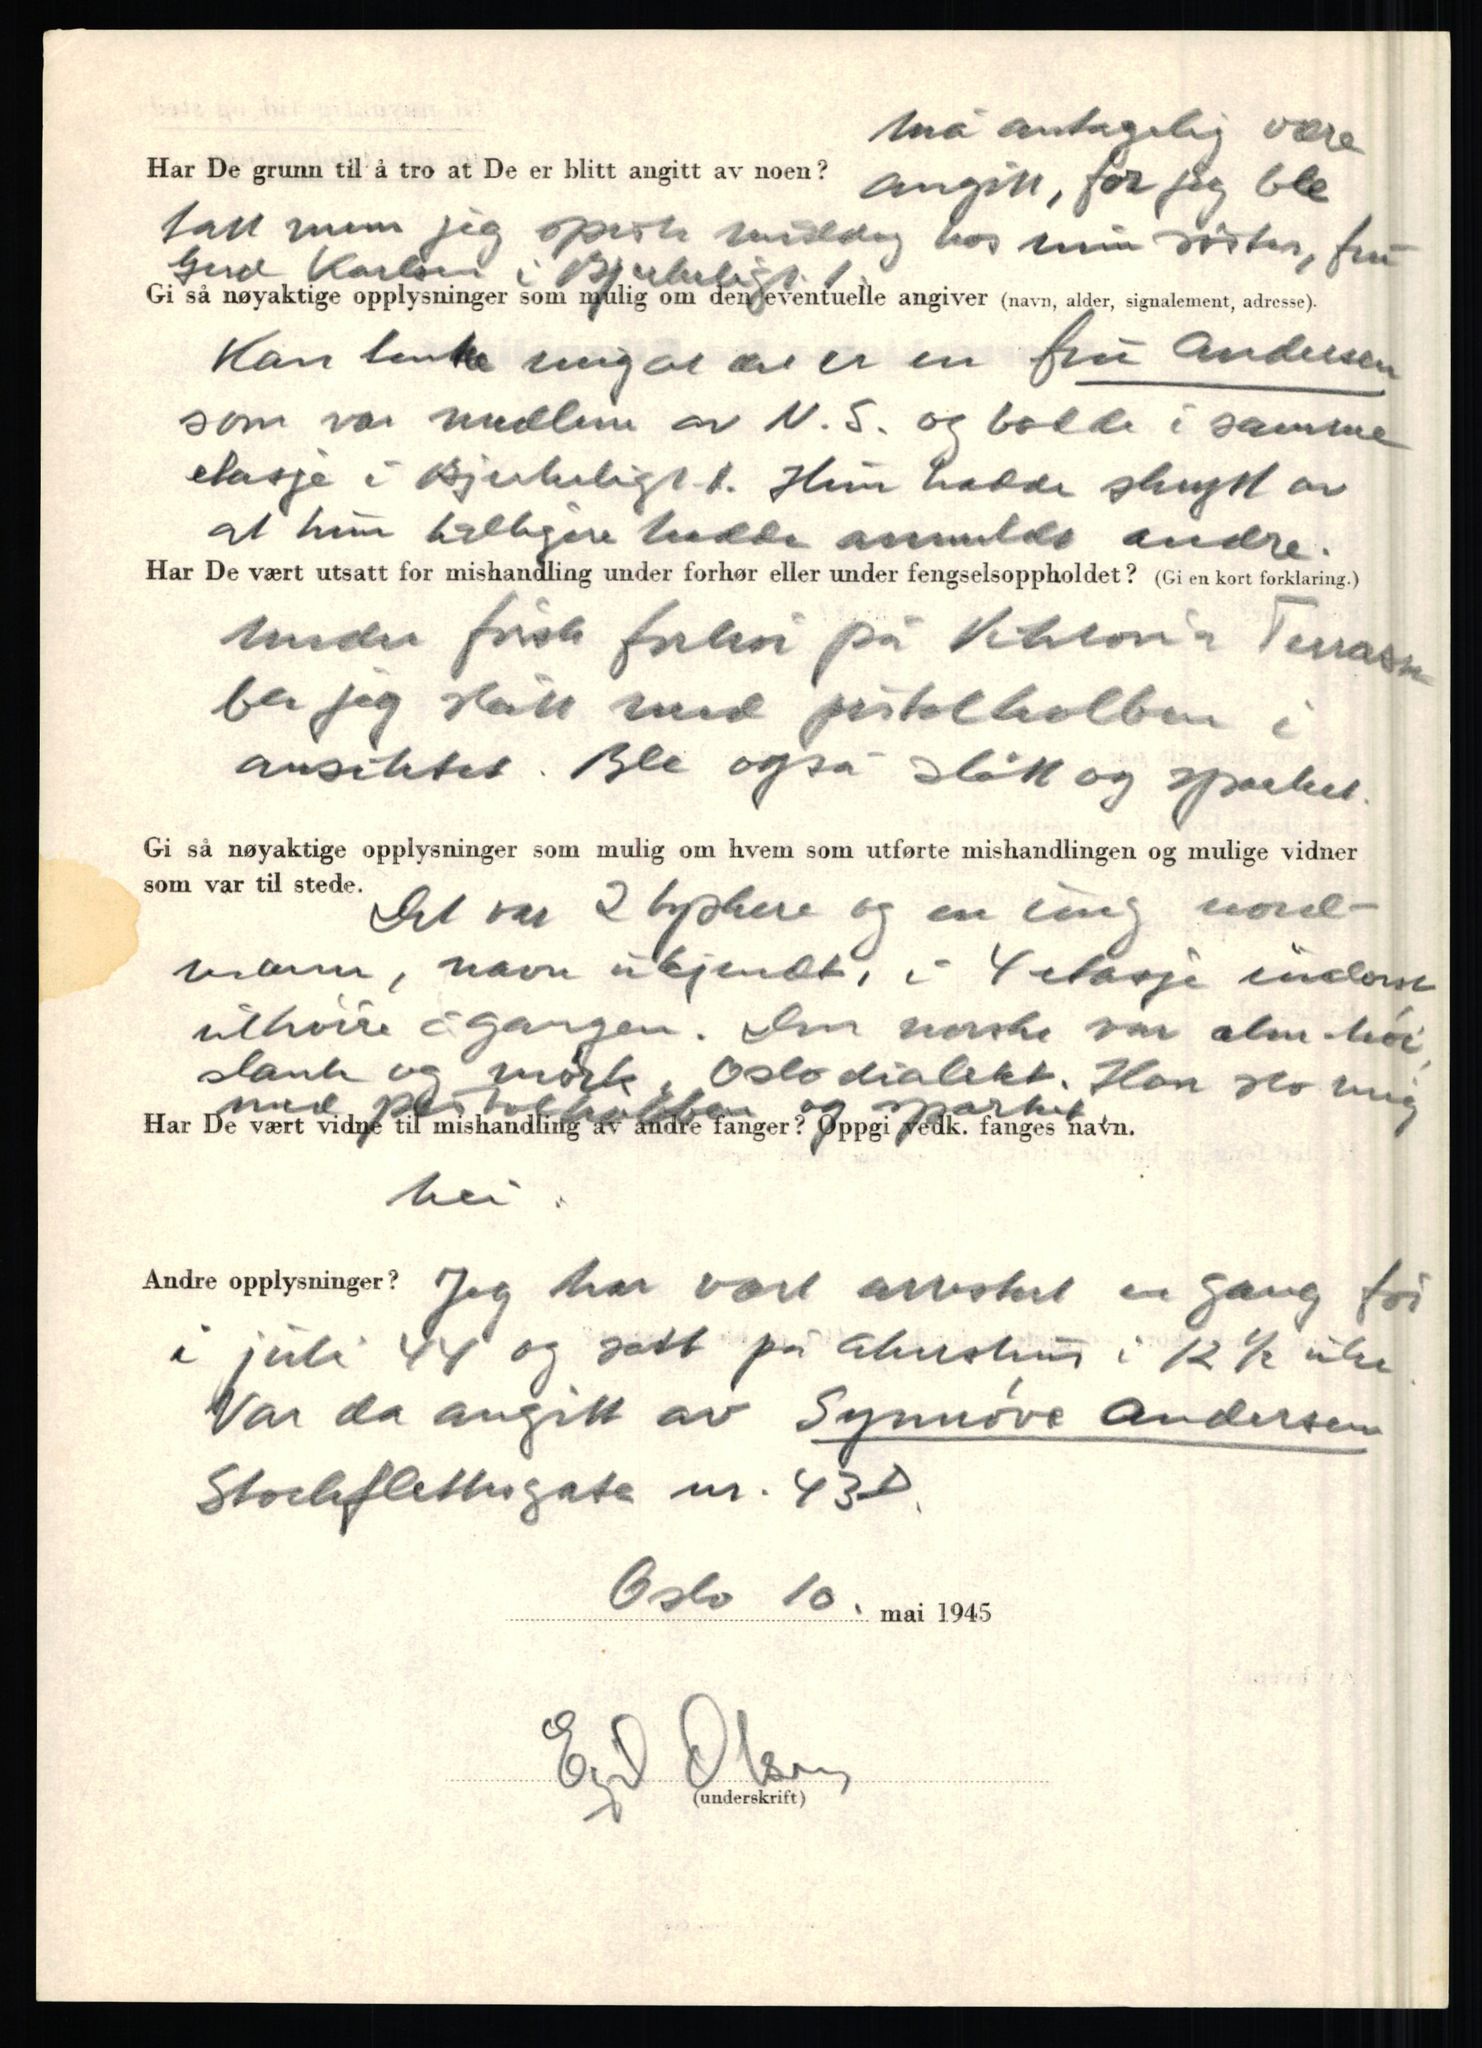 må antagelig være
Har De grunn til å tro at De er blitt angitt av noen? angitt, for jeg ble
tatt mens jeg spiste middag hos min söster, frü
Gerd Karlsen i Bjerkeligt. 1.
Gi så nøyaktige opplysninger som mulig om den eventuelle angiver (navn, alder, signalement, adresse).
Kan tenke mig at det er en frü Andersen
som var medlem av N.S. og bodde i samme
etasje i Bjerkeligt. 1. Hün hadde skrytt av
at hün tidligere hadde anmeldt andre.
Har De vært utsatt for mishandling under forhør eller under fengselsoppholdet? (Gi en kort forklaring.)
Under förste forhör på Viktoria Terrasse
ble jeg slått med pistolkolben i
ansiktet. Ble også slått og sparket.
Gi så nøyaktige opplysninger som mulig om hvem som utførte mishandlingen og mulige vidner
som var til stede. Det var 2 tyskere og en üng nord-
mann, navn ükjendt, i 4 etasje inderst
til höire i gangen. Den norske var alm. höi,
slank og mörk, Oslodialekt. Han slo mig
med pistolkolben og sparket.
Har De vært vidne til mishandling av andre fanger? Oppgi vedk. fanges navn.
Nei.
Andre opplysninger? Jeg har vært arrestert en gang för
i jüli 44 og satt på Akershüs i 12 ½ üke.
Var da angitt av Synnöve Andersen
Stockflethsgate nr. 43D.
Oslo 10. mai 1945
Egil Olsen
(underskrift)